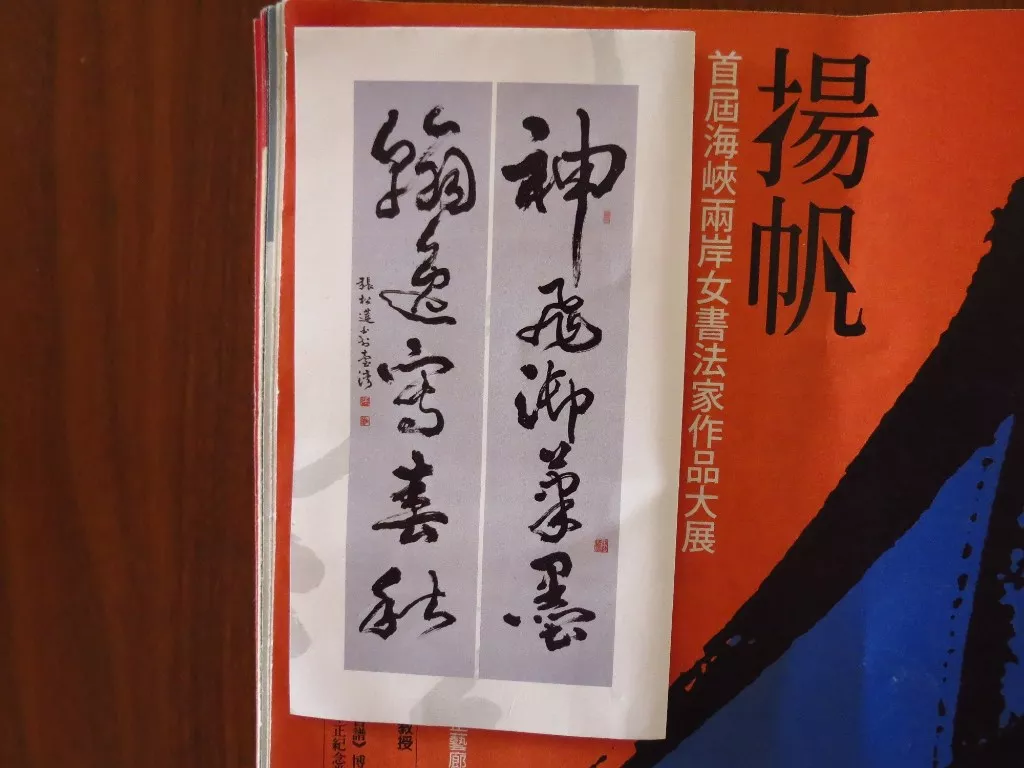 揚帆
首屆海峽兩岸女書法家作品大展
神飛御筆墨
翰逸寫春秋
張松蓮書於臺灣
教授
正藝廊
》博
正紀念